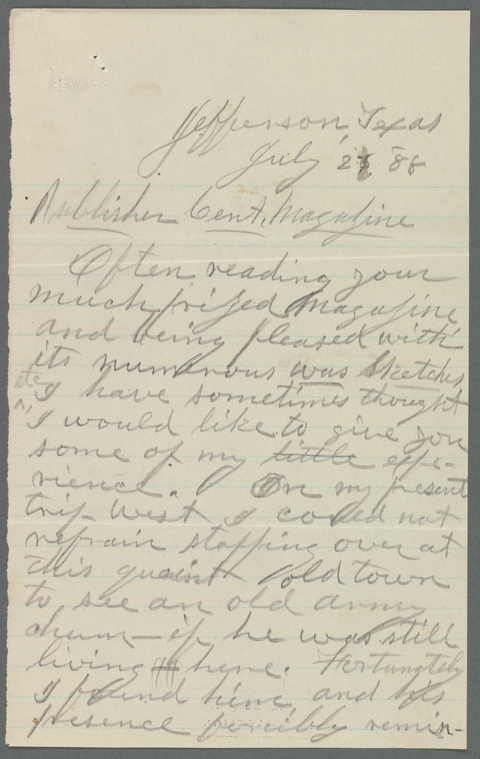 Jefferson, Texas
July 2 88
Publisher Cent. Magazine
Often reading your
much prized Magazine
and being pleased with
its numerous was Sketches
etc
I have sometimes thought
I would like to give you
some of my little expe-
rience. On my present
trip West I could not
refrain stopping over at
this quaint old town
to see an old army
chum — if he was still
living here. Fortunately
I found him, and his
presence forcibly remin-